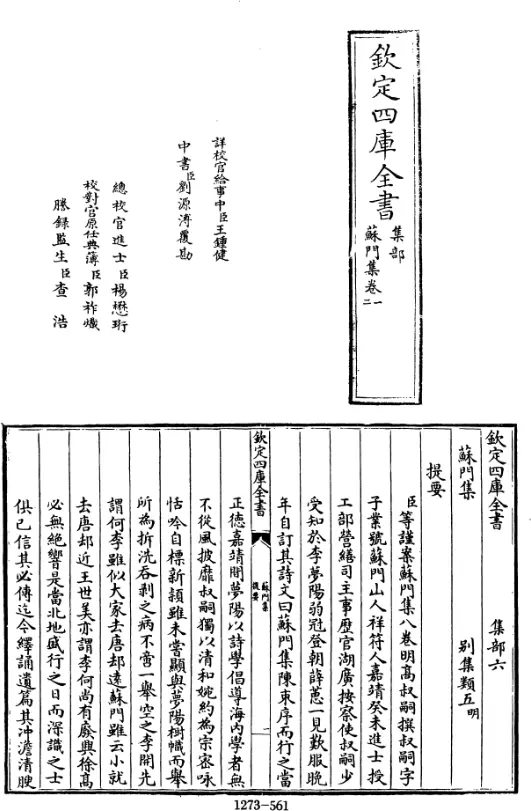 欽定四庫全書
集部
蘇門集卷一
二
詳校官給事中臣王鍾健
中書臣劉源溥覆勘
總校官進士臣楊懋珩
校對官原任典簿臣郭祚熾
謄錄監生臣查浩
欽定四庫全書
集部六
蘇門集
別集類五明
提要
臣等謹案蘇門集八卷明高叔嗣撰叔嗣字
子業號蘇門山人祥符人嘉靖癸未進士授
工部營繕司主事歷官湖廣按察使叔嗣少
受知於李夢陽弱冠登朝薛蕙一見歎服晚
年自訂其詩文曰蘇門集陳束序而行之當
欽定四庫全書
蘇門集
提要
一
正德嘉靖間夢陽以詩學倡導海内學者無
不從風披靡叔嗣獨以清和婉約為宗密咏
恬吟自標新頴雖未嘗顯與夢陽樹幟而舉
所為折洗吞剥之病不啻一舉空之李開先
謂何李雖似大家去唐却遠蘇門雖云小就
去唐却近王世美亦謂李何尚有廢興徐高
必無絕響是當北地盛行之日而深識之士
俱已信其必傳迄今繹誦遺篇其沖澹清腴
1273-561